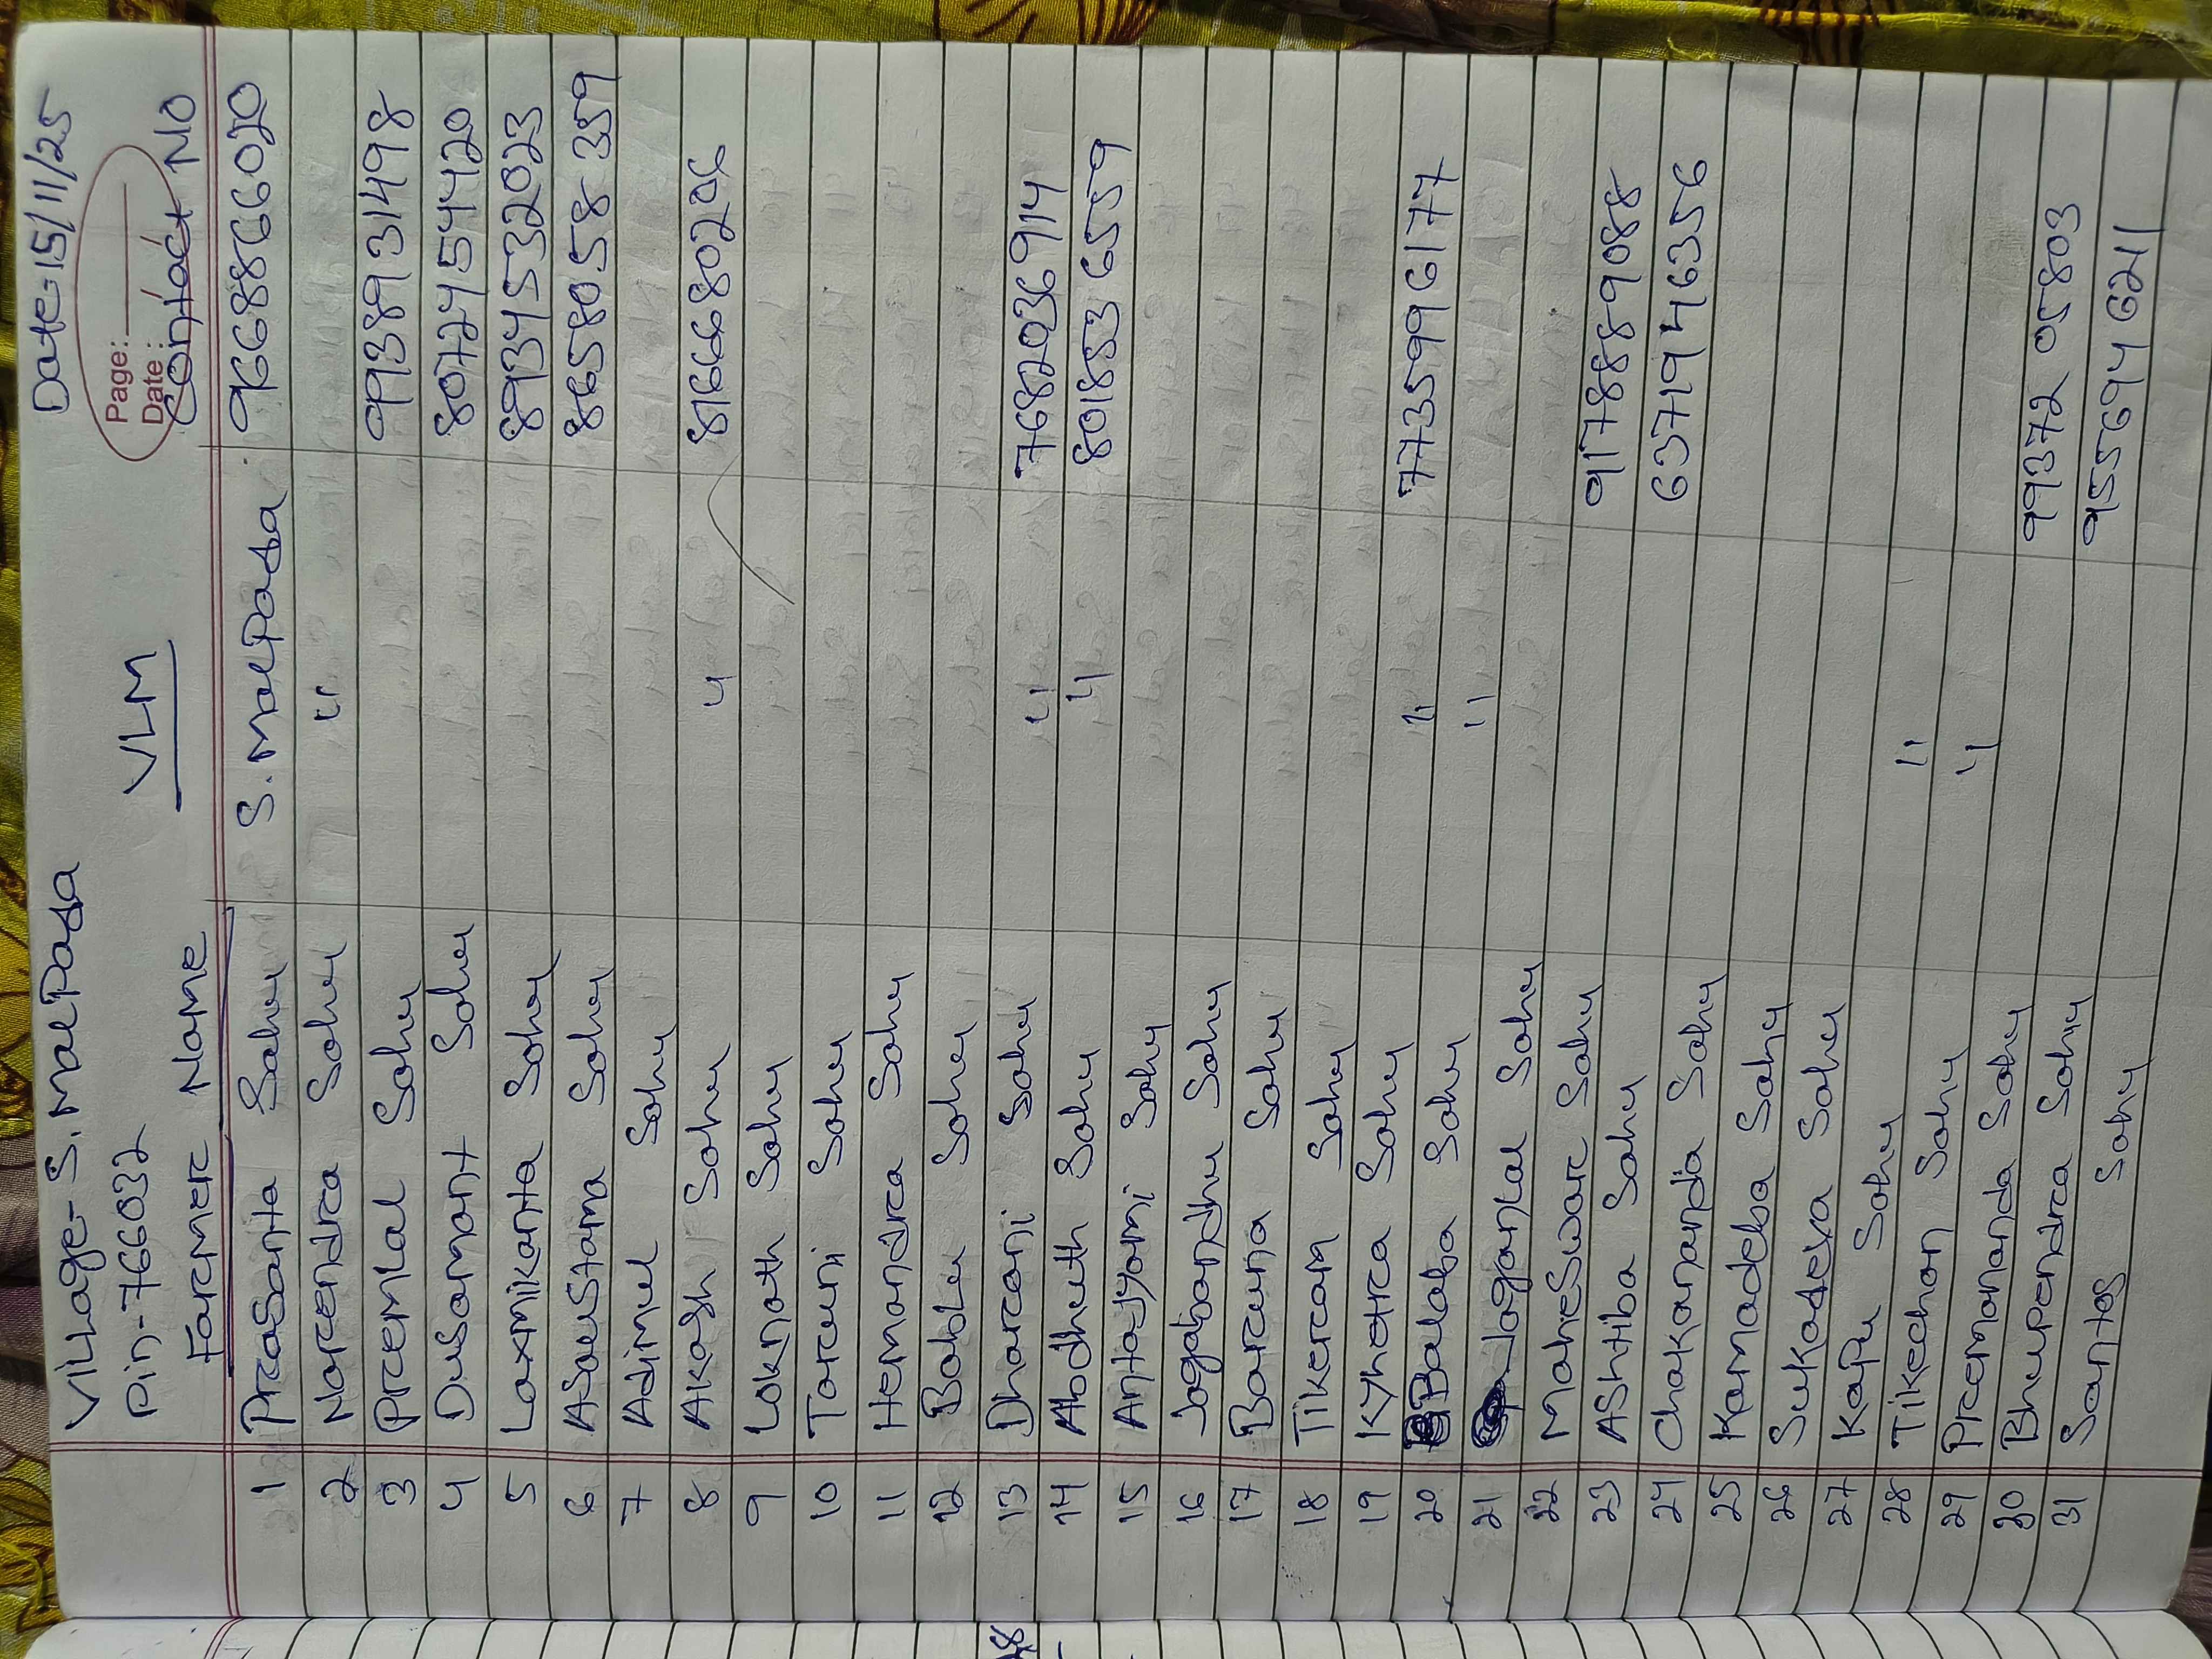 Date-15/11/25
Village- S. Malpada
Page:
Pin-766032 VLM Date:
Farmer Name Contact No
1 Prasanta Sahu S. Malpada 9668866020
2 Narendra Sahu "
3 Premlal Sahu 9938931498
4 Dusamant Sahu 80724554420
5 Laxmikanta Sahu 8934532023
6 Asaustama Sahu 8658058359
7 Adimul Sahu
8 Akash Sahu " 8166680206
9 Loknath Sahu
10 Taruni Sahu
11 Hemandra Sahu
12 Bablu Sahu
13 Dharani Sahu " 7682036914
14 Abdhuth Sahu " 8018536559
15 Antajyami Sahu
16 Jagabandhu Sahu
17 Baruna Sahu
18 Tikeram Sahu
19 Kyhetra Sahu
20 Balaba Sahu " 7735996177
21 Joganlal Sahu "
22 Maheswar Sahu
23 Ashtiba Sahu 9178889088
24 Chakananda Sahu 6371946356
25 Kamadeba Sahu
26 Sukadeva Sahu
27 Kapu Sahu
28 Tikechan Sahu "
29 Premananda Sahu "
30 Bhupendra Sahu 9937205803
31 Santos Sahu 9556946211